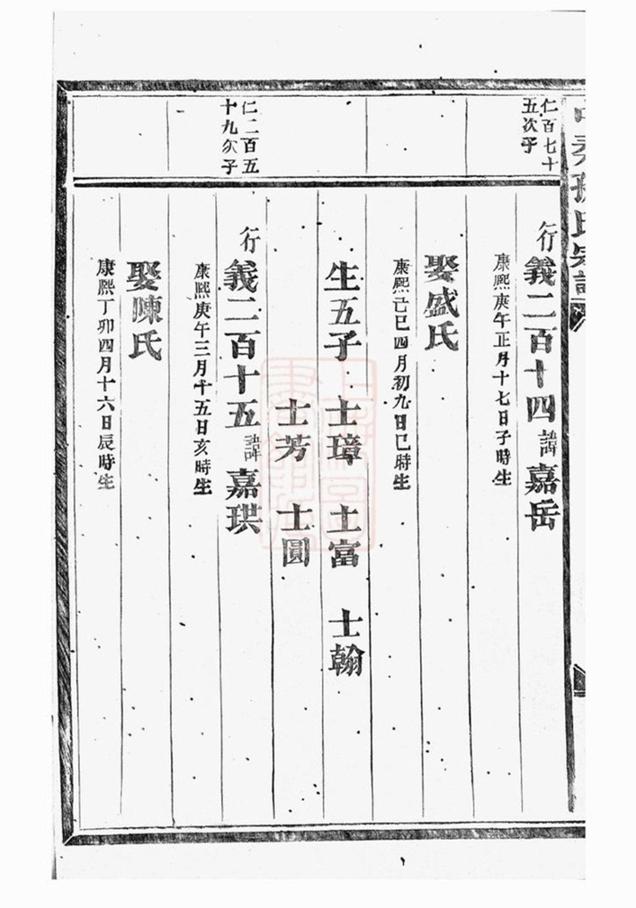 仁百七十
五次子
行義二百十四諱嘉岳
康熙庚午正月十七日子時生
娶盛氏
康熙己巳四月初九日巳時生
生五子 士璋 士富 士翰
士芳 士圓
仁二百五
十九次子
行義二百十五諱嘉珙
康熙庚午三月十五日亥時生
娶陳氏
康熙丁卯四月十六日辰時生